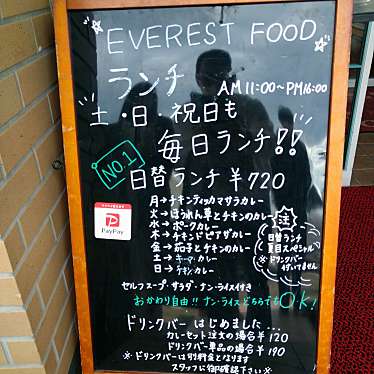 EVEREST FOOD
ランチ AM 11:00〜PM 16:00
土・日・祝日も
毎日ランチ!!
NO.1
日替ランチ ¥720
月→チキンティッカマサラカレー
火→ほうれん草とチキンのカレー
水→ポークカレー
木→チキンドピアザカレー
金→茄子とチキンのカレー
土→キーマカレー
日→チキンカレー
注
日替ランチ
夏目スペシャル
※ドリンクバー
付いてません
PayPay
セルフスープ・サラダ・ナン・ライス付き
おかわり自由!! ナン・ライスどちらでもO・K!
ドリンクバー はじめました...
カレーセット注文の場合 ¥120
ドリンクバー単品の場合 ¥190
※ドリンクバーは別料金となります
スタッフに御確認下さい※